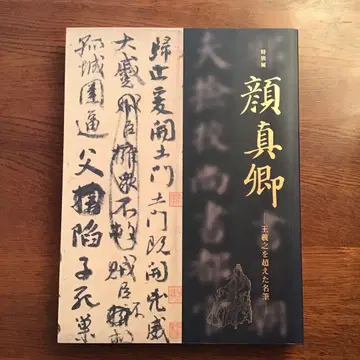 特別展
顔真卿
王羲之を超えた名筆
歸止爰開土門土門既開兇威
大蹙賊臣擁衆不救賊臣不
孤城圍逼父陷子死巢